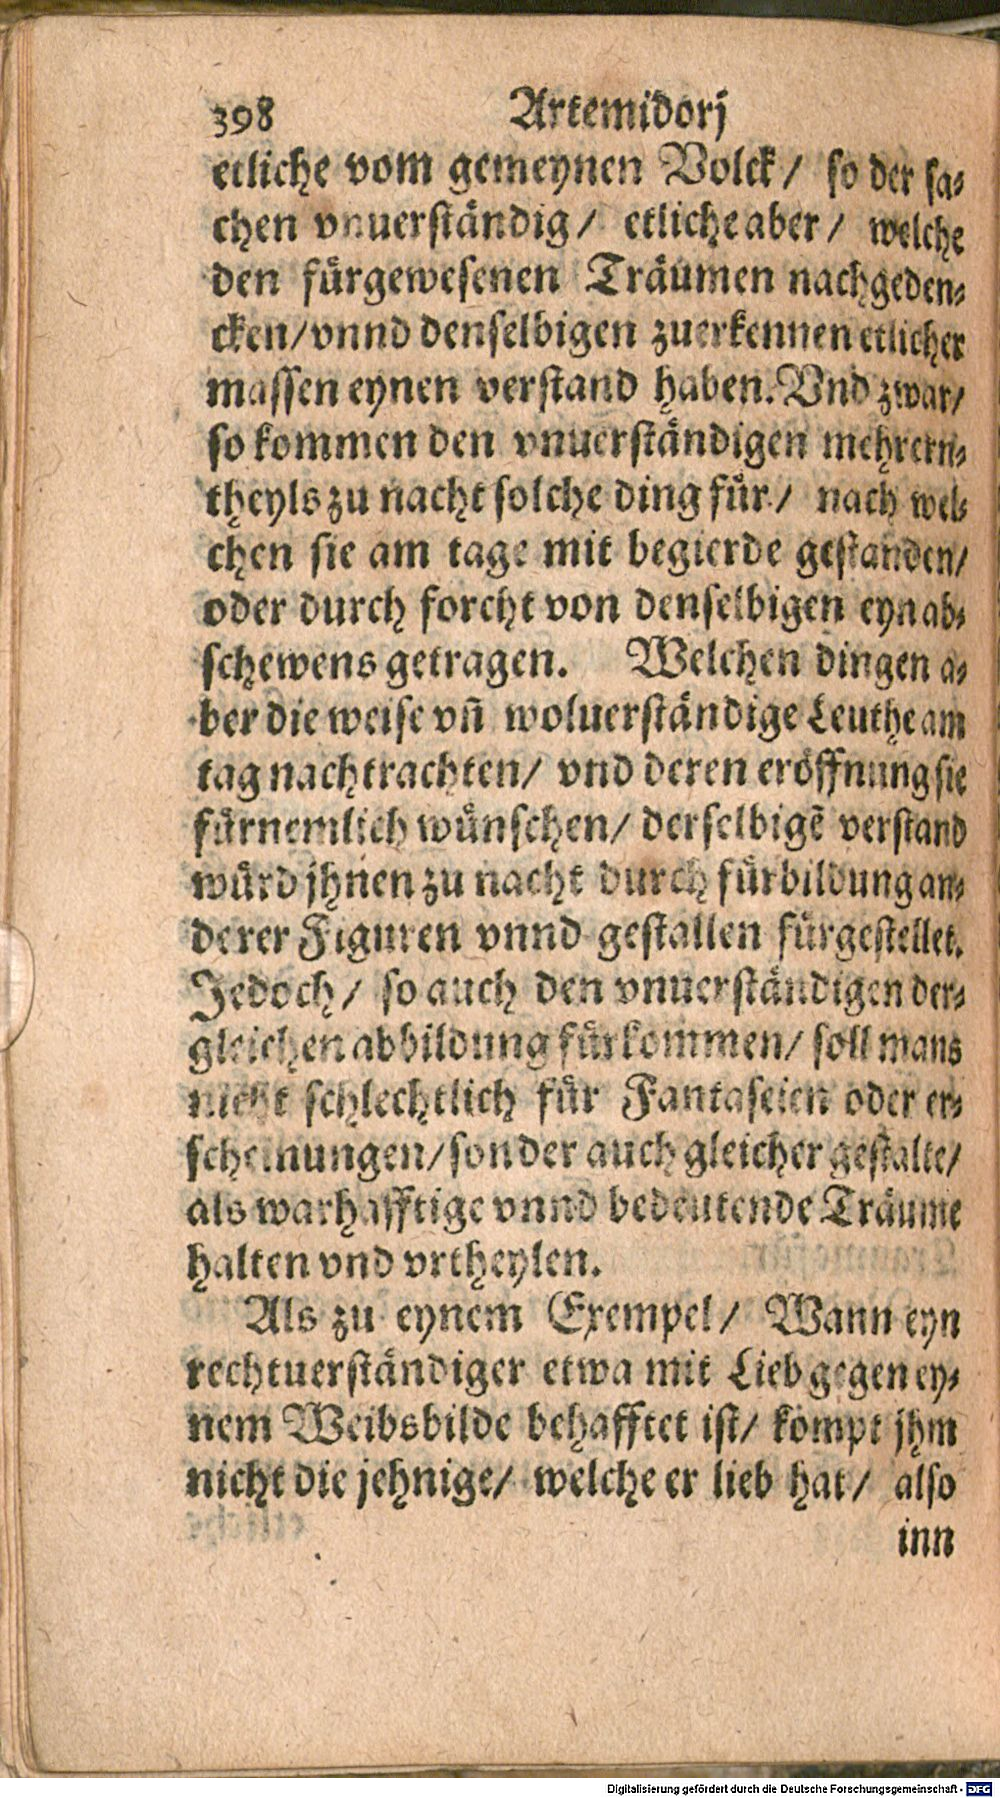 398 Artemidorj
etliche vom gemeynen Volck / so der sa-
chen vnuerständig / etliche aber / welche
den fürgewesenen Träumen nachgeden-
cken / vnnd denselbigen zuerkennen etlicher
massen eynen verstand haben. Vnd zwar /
so kommen den vnuerständigen mehrern-
theyls zu nacht solche ding für / nach wel-
chen sie am tage mit begierde gestanden /
oder durch forcht von denselbigen eyn ab-
schewens getragen. Welchen dingen a-
ber die weise vñ woluerständige Leuthe am
tag nachtrachten / vnd deren eröffnung sie
fürnemlich wünschen / derselbigẽ verstand
würd jhnen zu nacht durch fürbildung an-
derer Figuren vnnd gestallen fürgestellet.
Jedoch / so auch den vnuerständigen der-
gleichen abbildung fürkommen / soll mans
nicht schlechtlich für Fantaseien oder er-
scheinungen / sonder auch gleicher gestalte /
als warhafftige vnnd bedeutende Träume
halten vnd vrtheylen.
Als zu eynem Exempel / Wann eyn
rechtuerständiger etwa mit Lieb gegen ey-
nem Weibsbilde behafftet ist / kompt jhm
nicht die jehnige / welche er lieb hat / also
inn
Digitalisierung gefördert durch die Deutsche Forschungsgemeinschaft - DFG